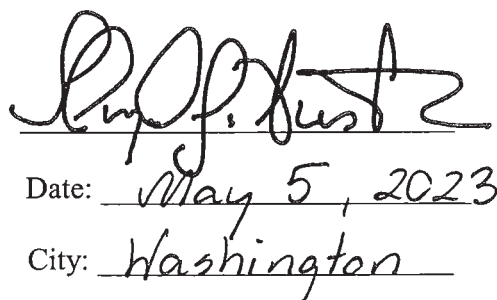 Date: May 5, 2023
City: Washington